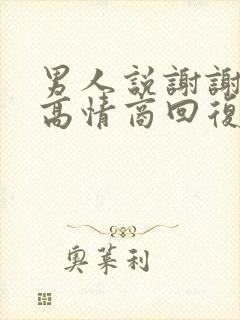 男人説謝謝
高情商回復
奧萊利